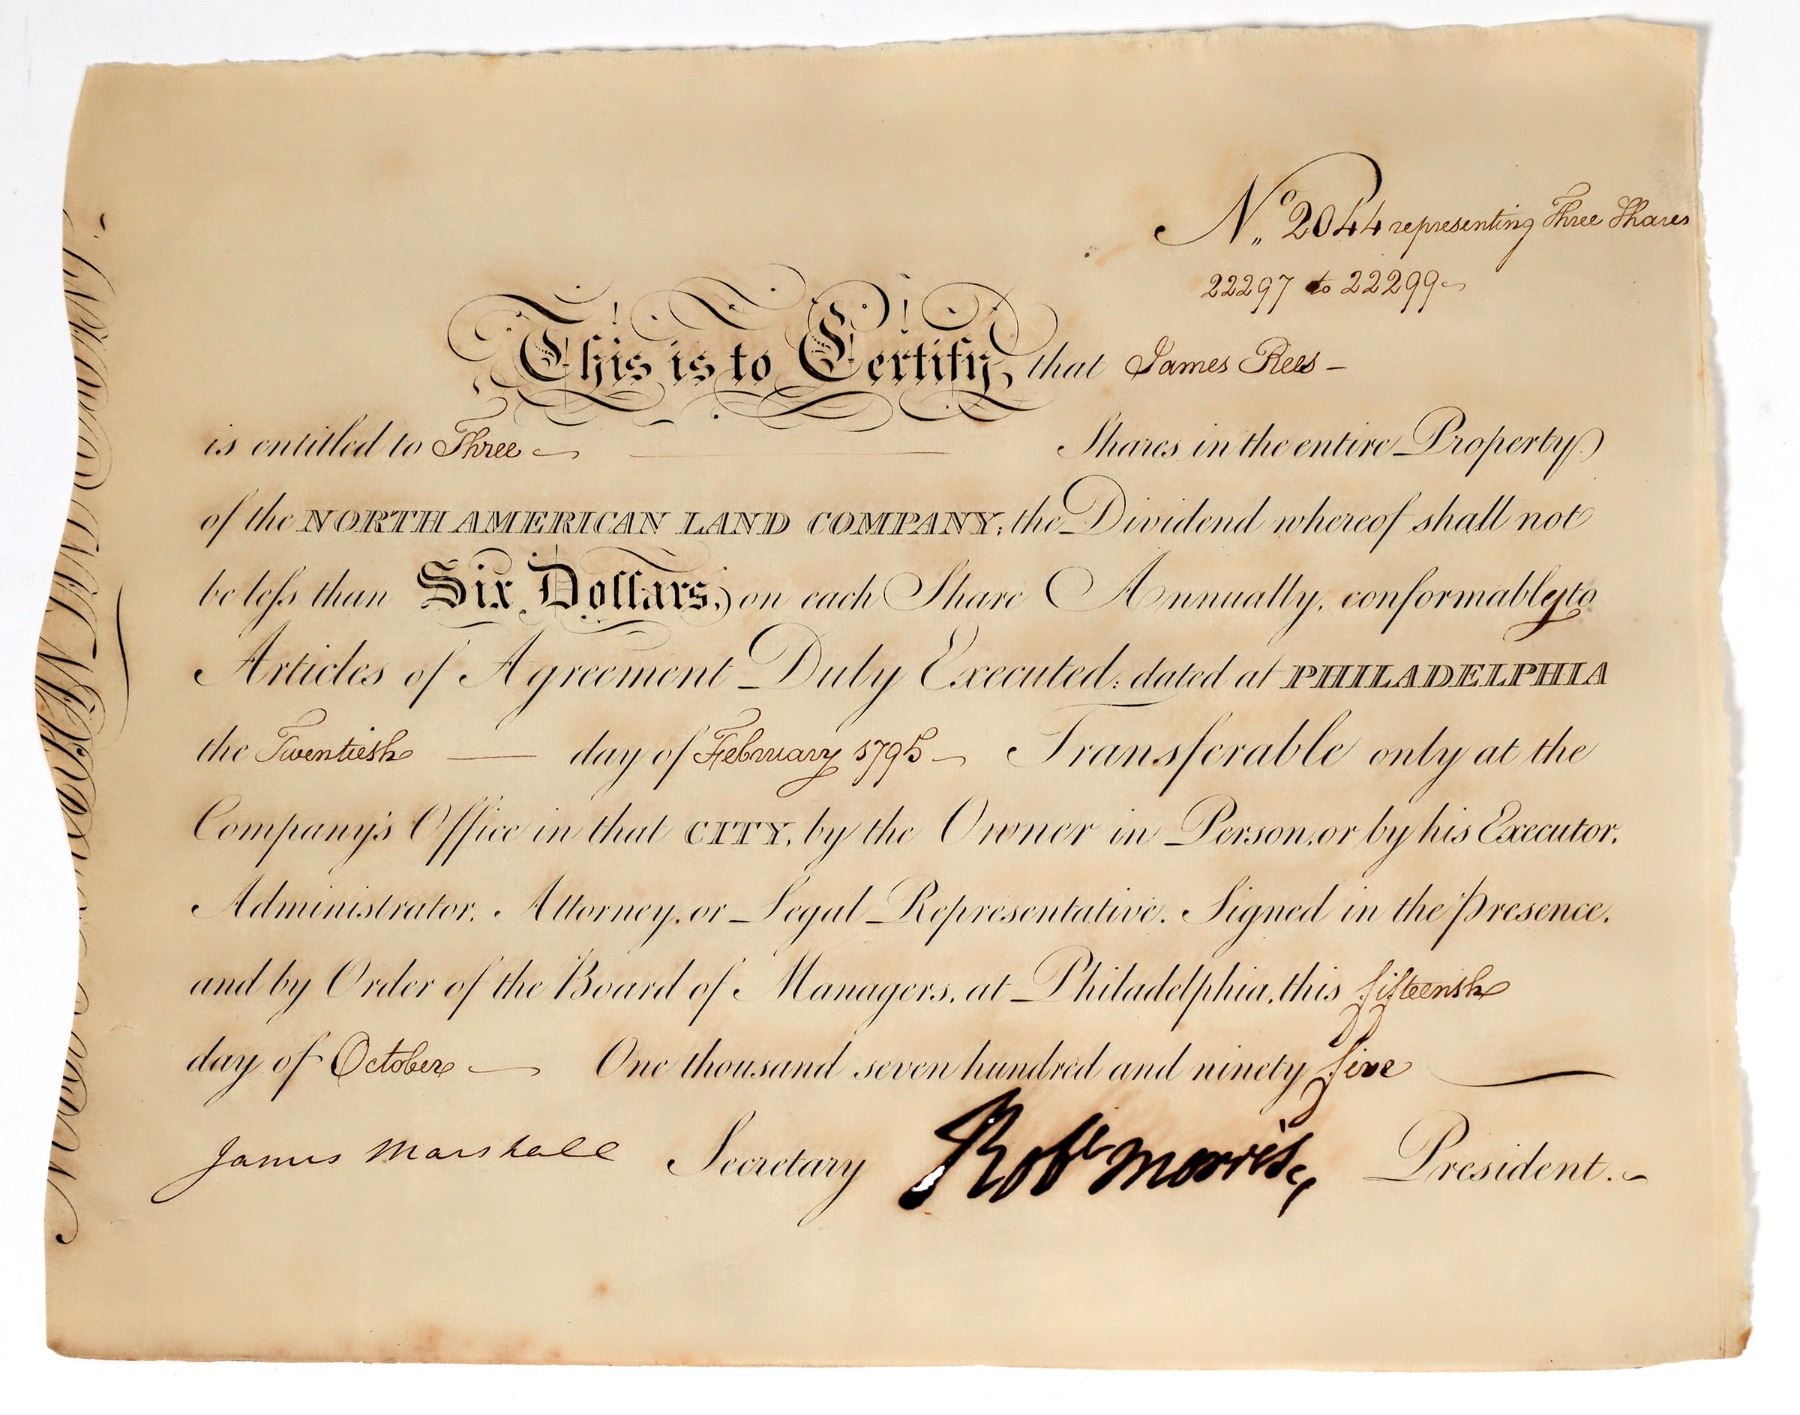 No. 2044 representing Three Shares
22297 to 22299
This is to Certify, that James Rees
is entitled to Three Shares in the entire Property
of the NORTH AMERICAN LAND COMPANY; the Dividend whereof shall not
be less than Six Dollars, on each Share Annually, conformably to
Articles of Agreement Duly Executed; dated at PHILADELPHIA
the Twentieth day of February 1795 Transferable only at the
Company's Office in that CITY, by the Owner in Person, or by his Executor,
Administrator, Attorney, or Legal Representative. Signed in the presence,
and by Order of the Board of Managers, at Philadelphia, this fifteenth
day of October One thousand seven hundred and ninety five
James Marshall Secretary Robt Morris President.